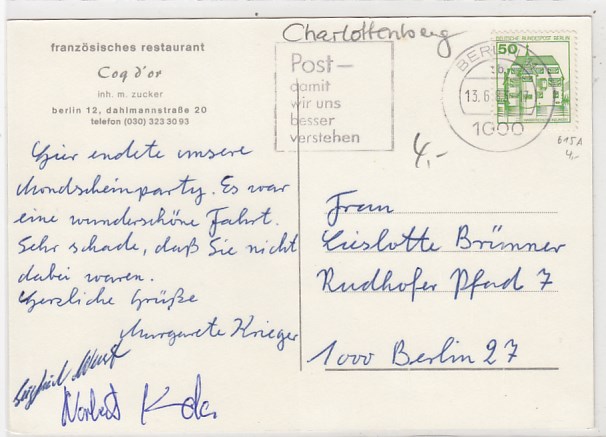 französisches restaurant
Coq d'or
inh. m. zucker
berlin 12, dahlmannstraße 20
telefon (030) 323 30 93
Hier endete unsere
Mondscheinparty. Es war
eine wunderschöne Fahrt.
Sehr schade, daß Sie nicht
dabei waren.
Herzliche Grüße
Margarete Krieger
Norbert
Charlottenberg
Post-
damit
wir uns
besser
verstehen
BERLIN
13.6.
1000
DEUTSCHE BUNDESPOST BERLIN
50
4,-
615A
4,-
Frau
Lieslotte Brünner
Rudhofer Pfad 7
1000 Berlin 27